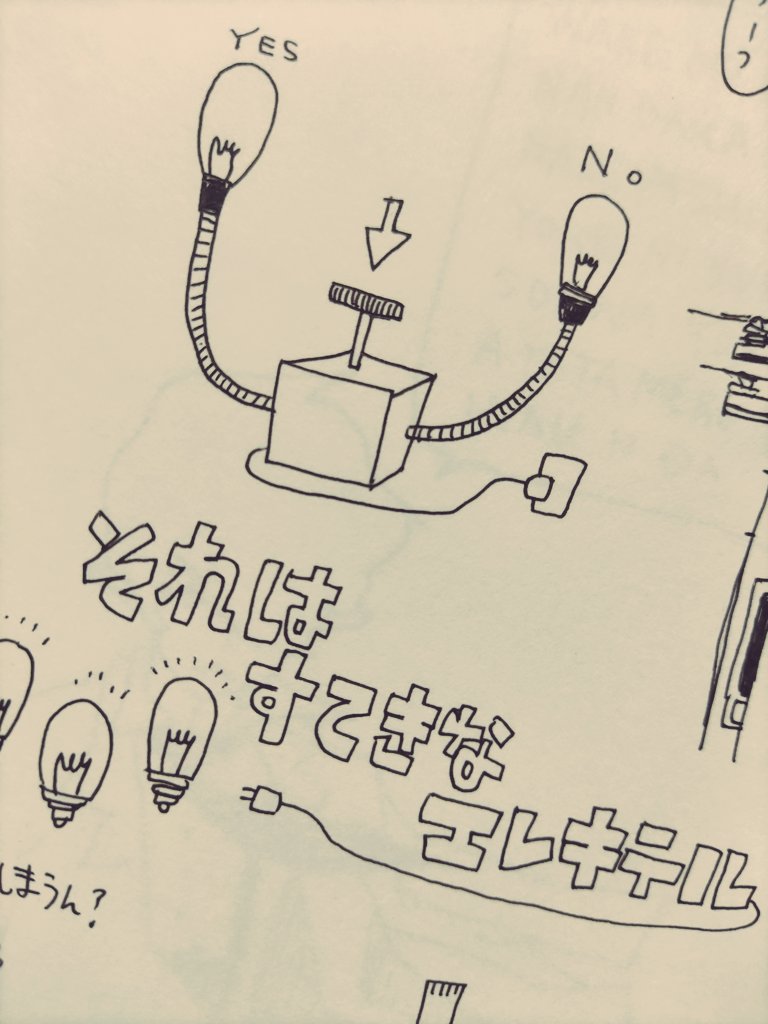 YES
No
それは
すてきな
エレキテル
しまうん?